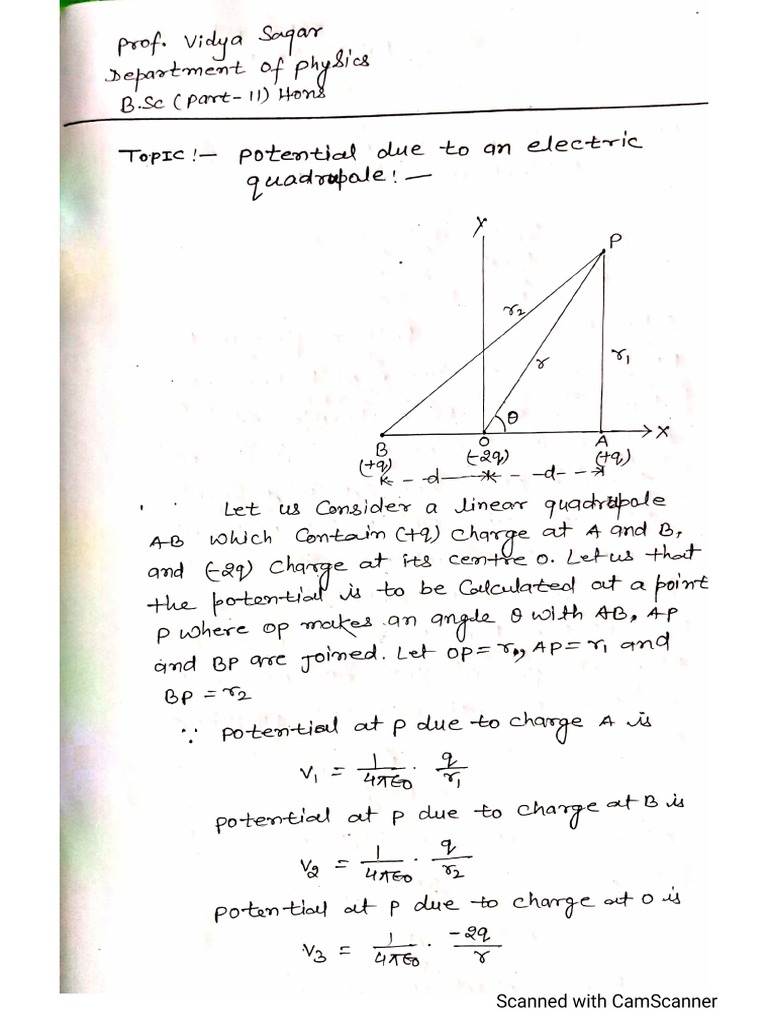 Prof. Vidya Sagar
Department of Physics
B.Sc (Part-II) Hons
TOPIC:- Potential due to an electric
quadrupole:-
Y
P
r2
r
r1
θ
X
B
O
A
(+q)
(-2q)
(+q)
d
d
Let us Consider a linear quadrupole
AB which Contain (+q) Charge at A and B,
and (-2q) Charge at its centre O. Let us that
the potential is to be Calculated at a point
P where OP makes an angle θ with AB, AP
and BP are joined. Let OP = r, AP = r1 and
BP = r2
∵ potential at P due to charge A is
V1 = 1/4πε0 · q/r1
potential at P due to charge at B is
V2 = 1/4πε0 · q/r2
potential at P due to charge at O is
V3 = 1/4πε0 · -2q/r
Scanned with CamScanner